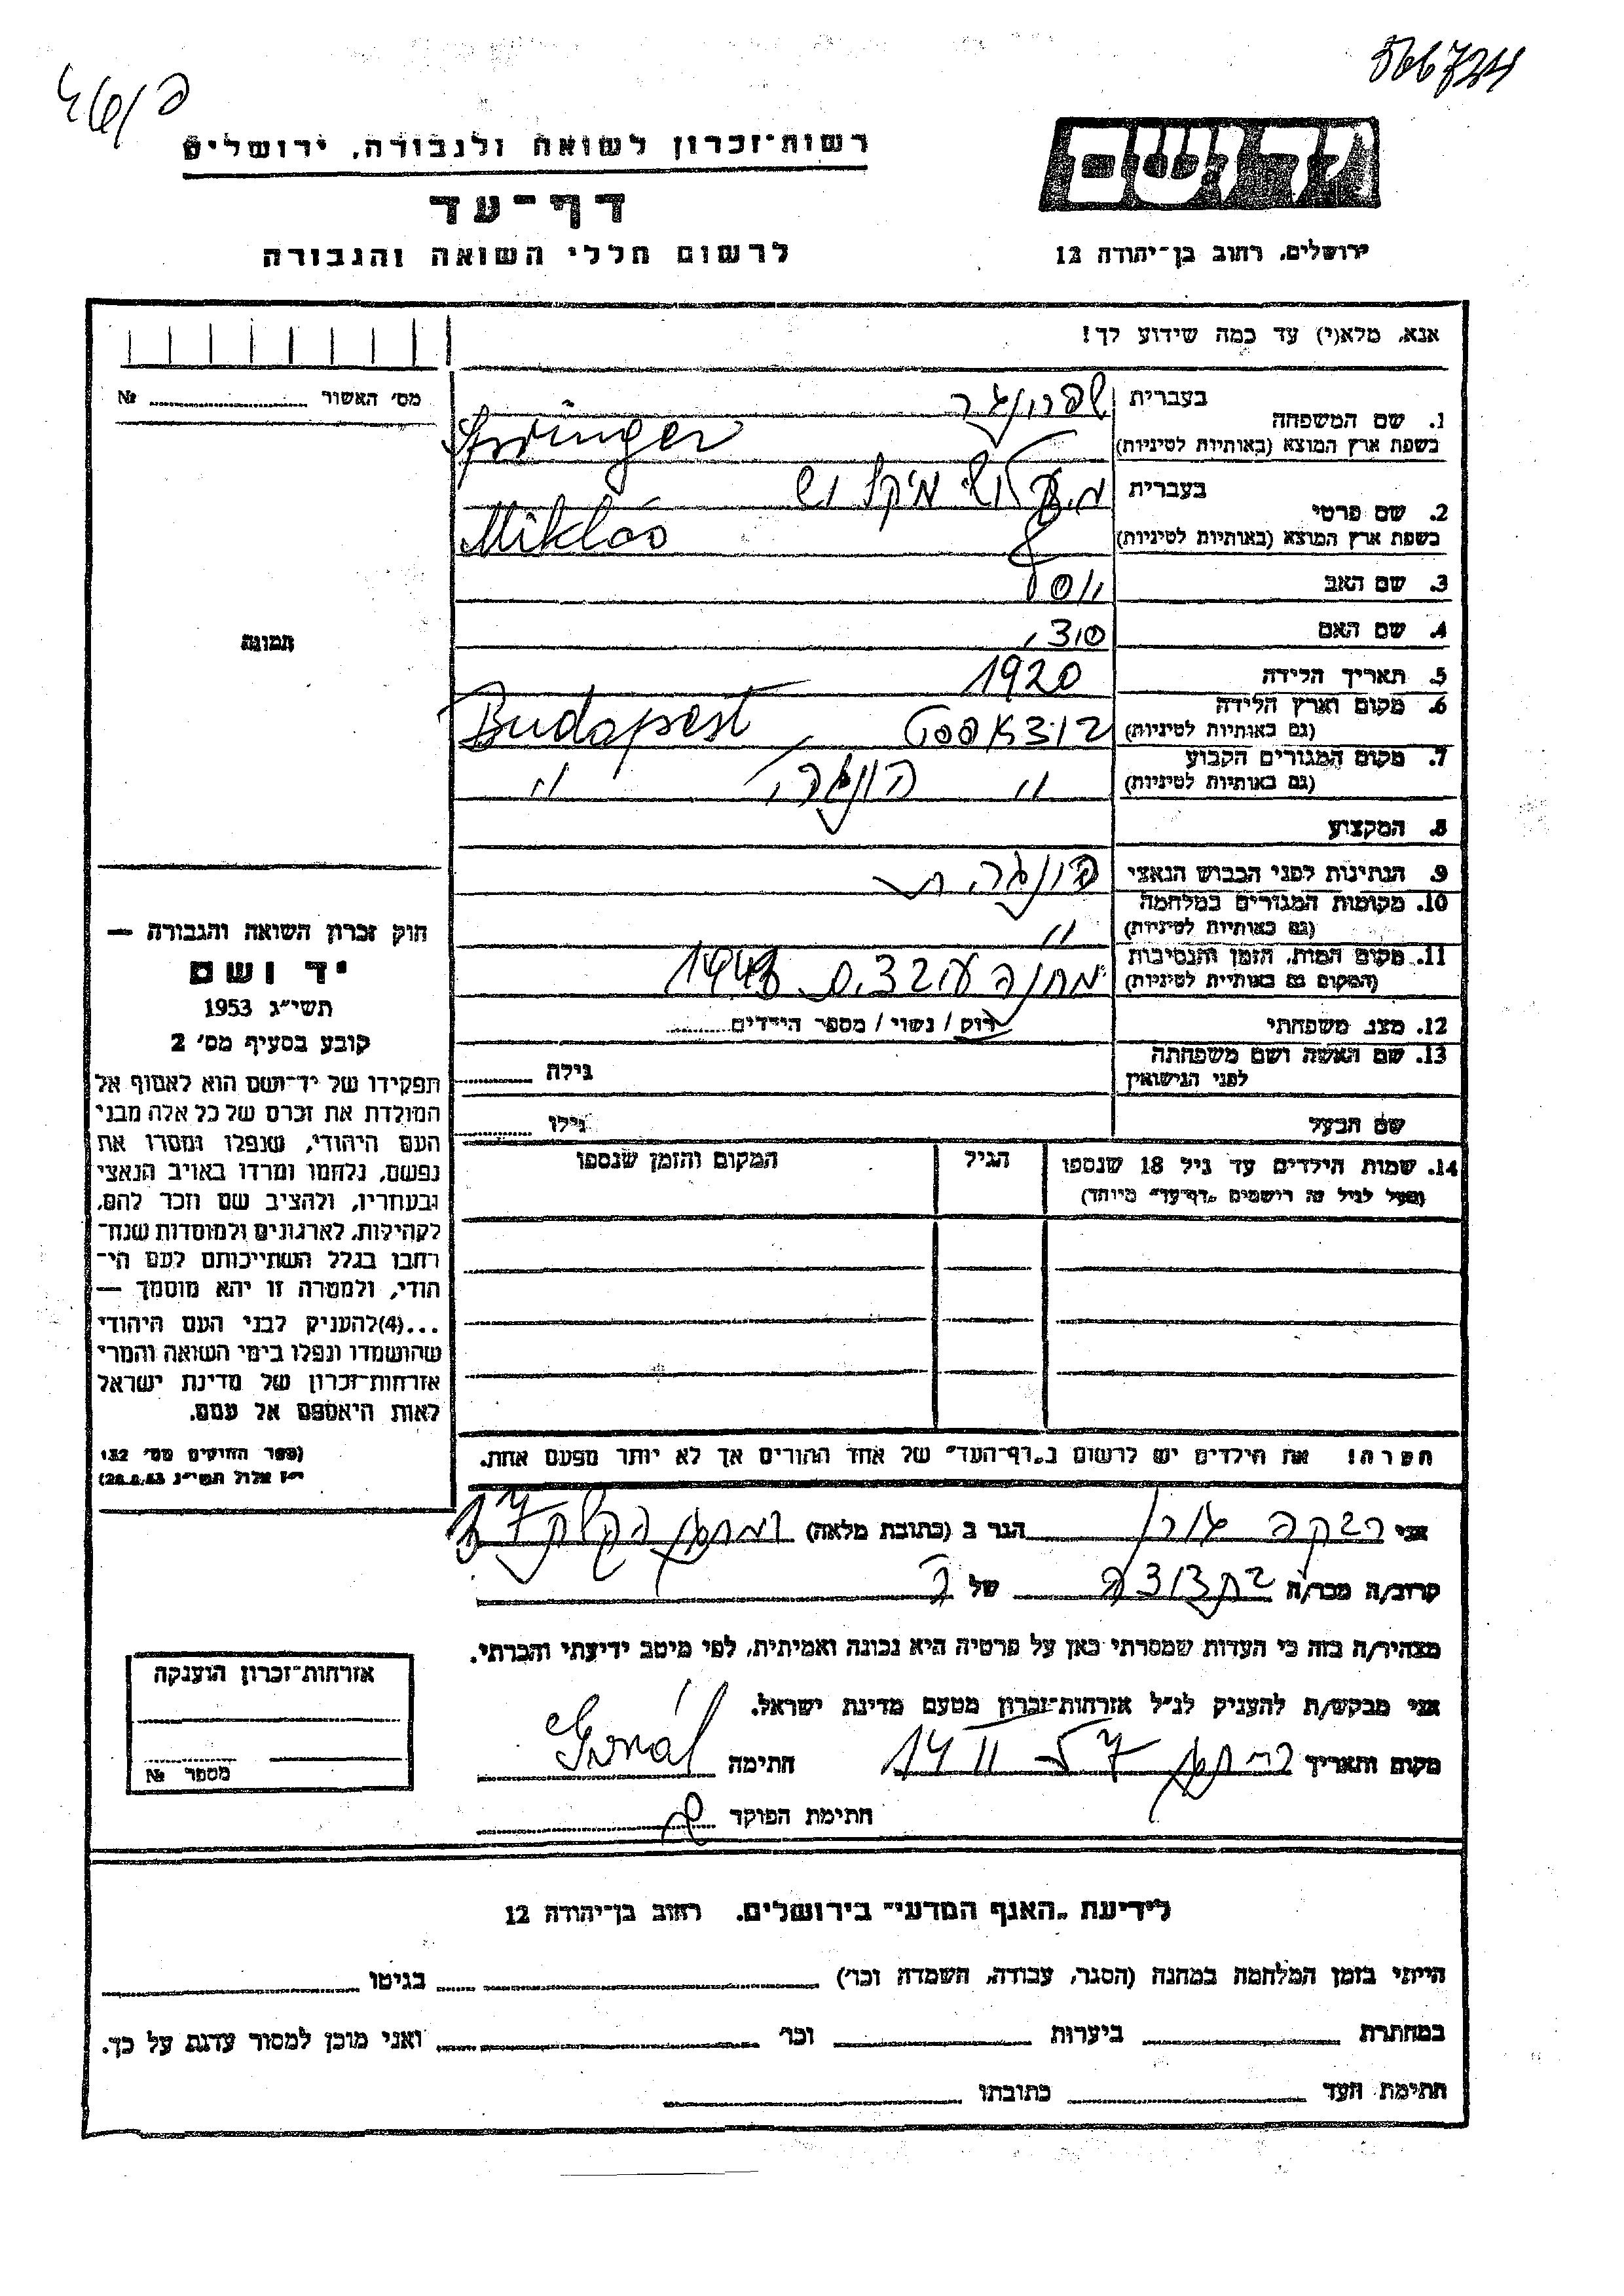 566724
רשות־זכרון לשואה ולגבורה, ירושלים
דף־עד
לרשום חללי השואה והגבורה
ירושלים, רחוב בן־יהודה 12
אנא, מלא(י) עד כמה שידוע לך!
מס' האשור № 
1. שם המשפחה
בעברית שפרינגר
בשפת ארץ המוצא (באותיות לטיניות) Springer
2. שם פרטי
בעברית מיקלוש
בשפת ארץ המוצא (באותיות לטיניות) Miklós
3. שם האב יוסף
4. שם האם
תמונה
5. תאריך הלידה 1920
6. מקום וארץ הלידה
(גם באותיות לטיניות) בודאפסט Budapest
7. מקום המגורים הקבוע
(גם באותיות לטיניות) " הונגרי "
8. המקצוע
9. הנתינות לפני הכבוש הנאצי הונגרית
10. מקומות המגורים במלחמה
(גם באותיות לטיניות) "
11. מקום המות, הזמן והנסיבות
(המקום גם באותיות לטיניות) מחנה
12. מצב משפחתי רווק / נשוי / מספר הילדים
13. שם האשה ושם משפחתה
לפני הנישואין גילה
שם הבעל גילו
14. שמות הילדים עד גיל 18 שנספו
(מעל לגיל זה רושמים „דף־עד" מיוחד)
הגיל
המקום והזמן שנספו
הערה! את הילדים יש לרשום ב„דף־העד" של אחד ההורים אך לא יותר מפעם אחת.
חוק זכרון השואה והגבורה —
יד ושם
תשי"ג 1953
קובע בסעיף מס' 2
תפקידו של יד־ושם הוא לאסוף אל
המולדת את זכרם של כל אלה מבני
העם היהודי, שנפלו ומסרו את
נפשם, נלחמו ומרדו באויב הנאצי
ובעוזריו, ולהציב שם וזכר להם,
לקהילות, לארגונים ולמוסדות שנח־
רבו בגלל השתייכותם לעם הי־
הודי, ולמטרה זו יהא מוסמך —
...(4)להעניק לבני העם היהודי
שהושמדו ונפלו בימי השואה והמרי
אזרחות־זכרון של מדינת ישראל
לאות היאספם אל עמם.
(ספר החוקים מס' 132
י"ז אלול תשי"ג 28.8.53)
אני רבקה הגר ב (כתובת מלאה)
קרוב/ה מכר/ה בת דודה של
מצהיר/ה בזה כי העדות שמסרתי כאן על פרטיה היא נכונה ואמיתית, לפי מיטב ידיעתי והכרתי.
אני מבקש/ת להעניק לנ"ל אזרחות־זכרון מטעם מדינת ישראל.
מקום ותאריך 14 II 57 חתימה
חתימת הפוקד
אזרחות־זכרון הוענקה
מספר №
לידיעת „האגף המדעי" בירושלים. רחוב בן־יהודה 12
הייתי בזמן המלחמה במחנה (הסגר, עבודה, השמדה וכו') בגיטו
במחתרת ביערות וכו' ואני מוכן למסור עדות על כך.
חתימת העד כתובתו